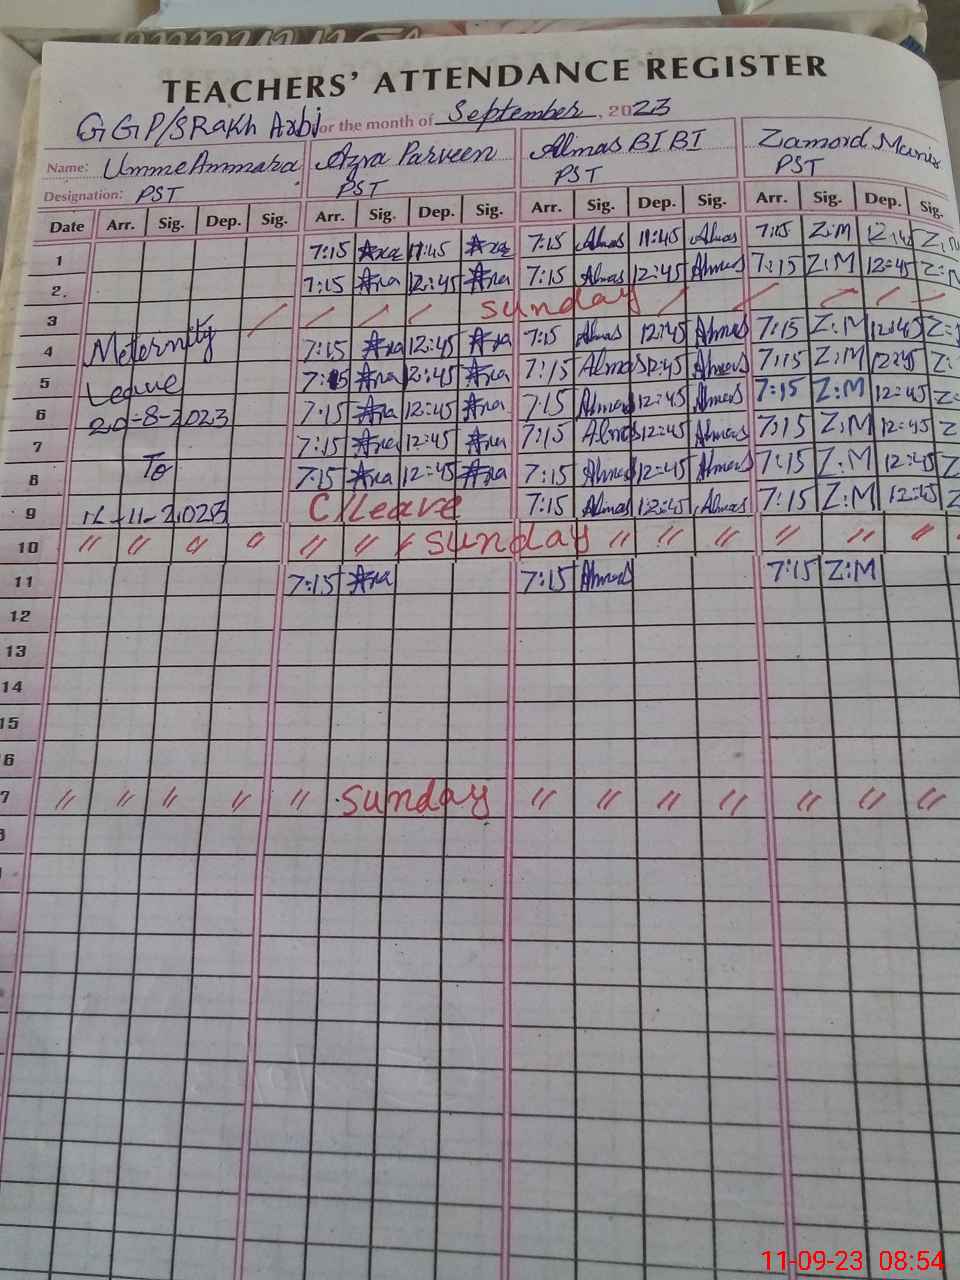 TEACHERS' ATTENDANCE REGISTER
GGP/S Rakh Arbi for the month of September, 2023
Name: Umme Ammara Azra Parveen Almas BI BI Zamord Munir
Designation: PST PST PST PST
Date Arr. Sig. Dep. Sig. Arr. Sig. Dep. Sig. Arr. Sig. Dep. Sig. Arr. Sig. Dep. Sig.
1 7:15 Azra 11:45 Azra 7:15 Almas 11:45 Almas 7:15 Z:M 12:45 Z:M
2. 7:15 Azra 12:45 Azra 7:15 Almas 12:45 Almas 7:15 Z:M 12:45 Z:M
3 sunday
4 Meternity 7:15 Azra 12:45 Azra 7:15 Almas 12:45 Almas 7:15 Z:M 12:45 Z:
5 Leave 7:15 Azra 12:45 Azra 7:15 Almas 12:45 Almas 7:15 Z:M 12:45 Z:
6 20-8-2023 7:15 Azra 12:45 Azra 7:15 Almas 12:45 Almas 7:15 Z:M 12:45 Z
7 7:15 Azra 12:45 Azra 7:15 Almas 12:45 Almas 7:15 Z:M 12:45 Z
8 To 7:15 Azra 12:45 Azra 7:15 Almas 12:45 Almas 7:15 Z:M 12:45 Z
9 -11-2023 C/Leave 7:15 Almas 12:45 Almas 7:15 Z:M 12:45 Z
10 " " " " " " " sunday " " " " " "
11 7:15 Azra 7:15 Almas 7:15 Z:M
12
13
14
15
6
7 " " " " " sunday " " " " " " "
11-09-23 08:54